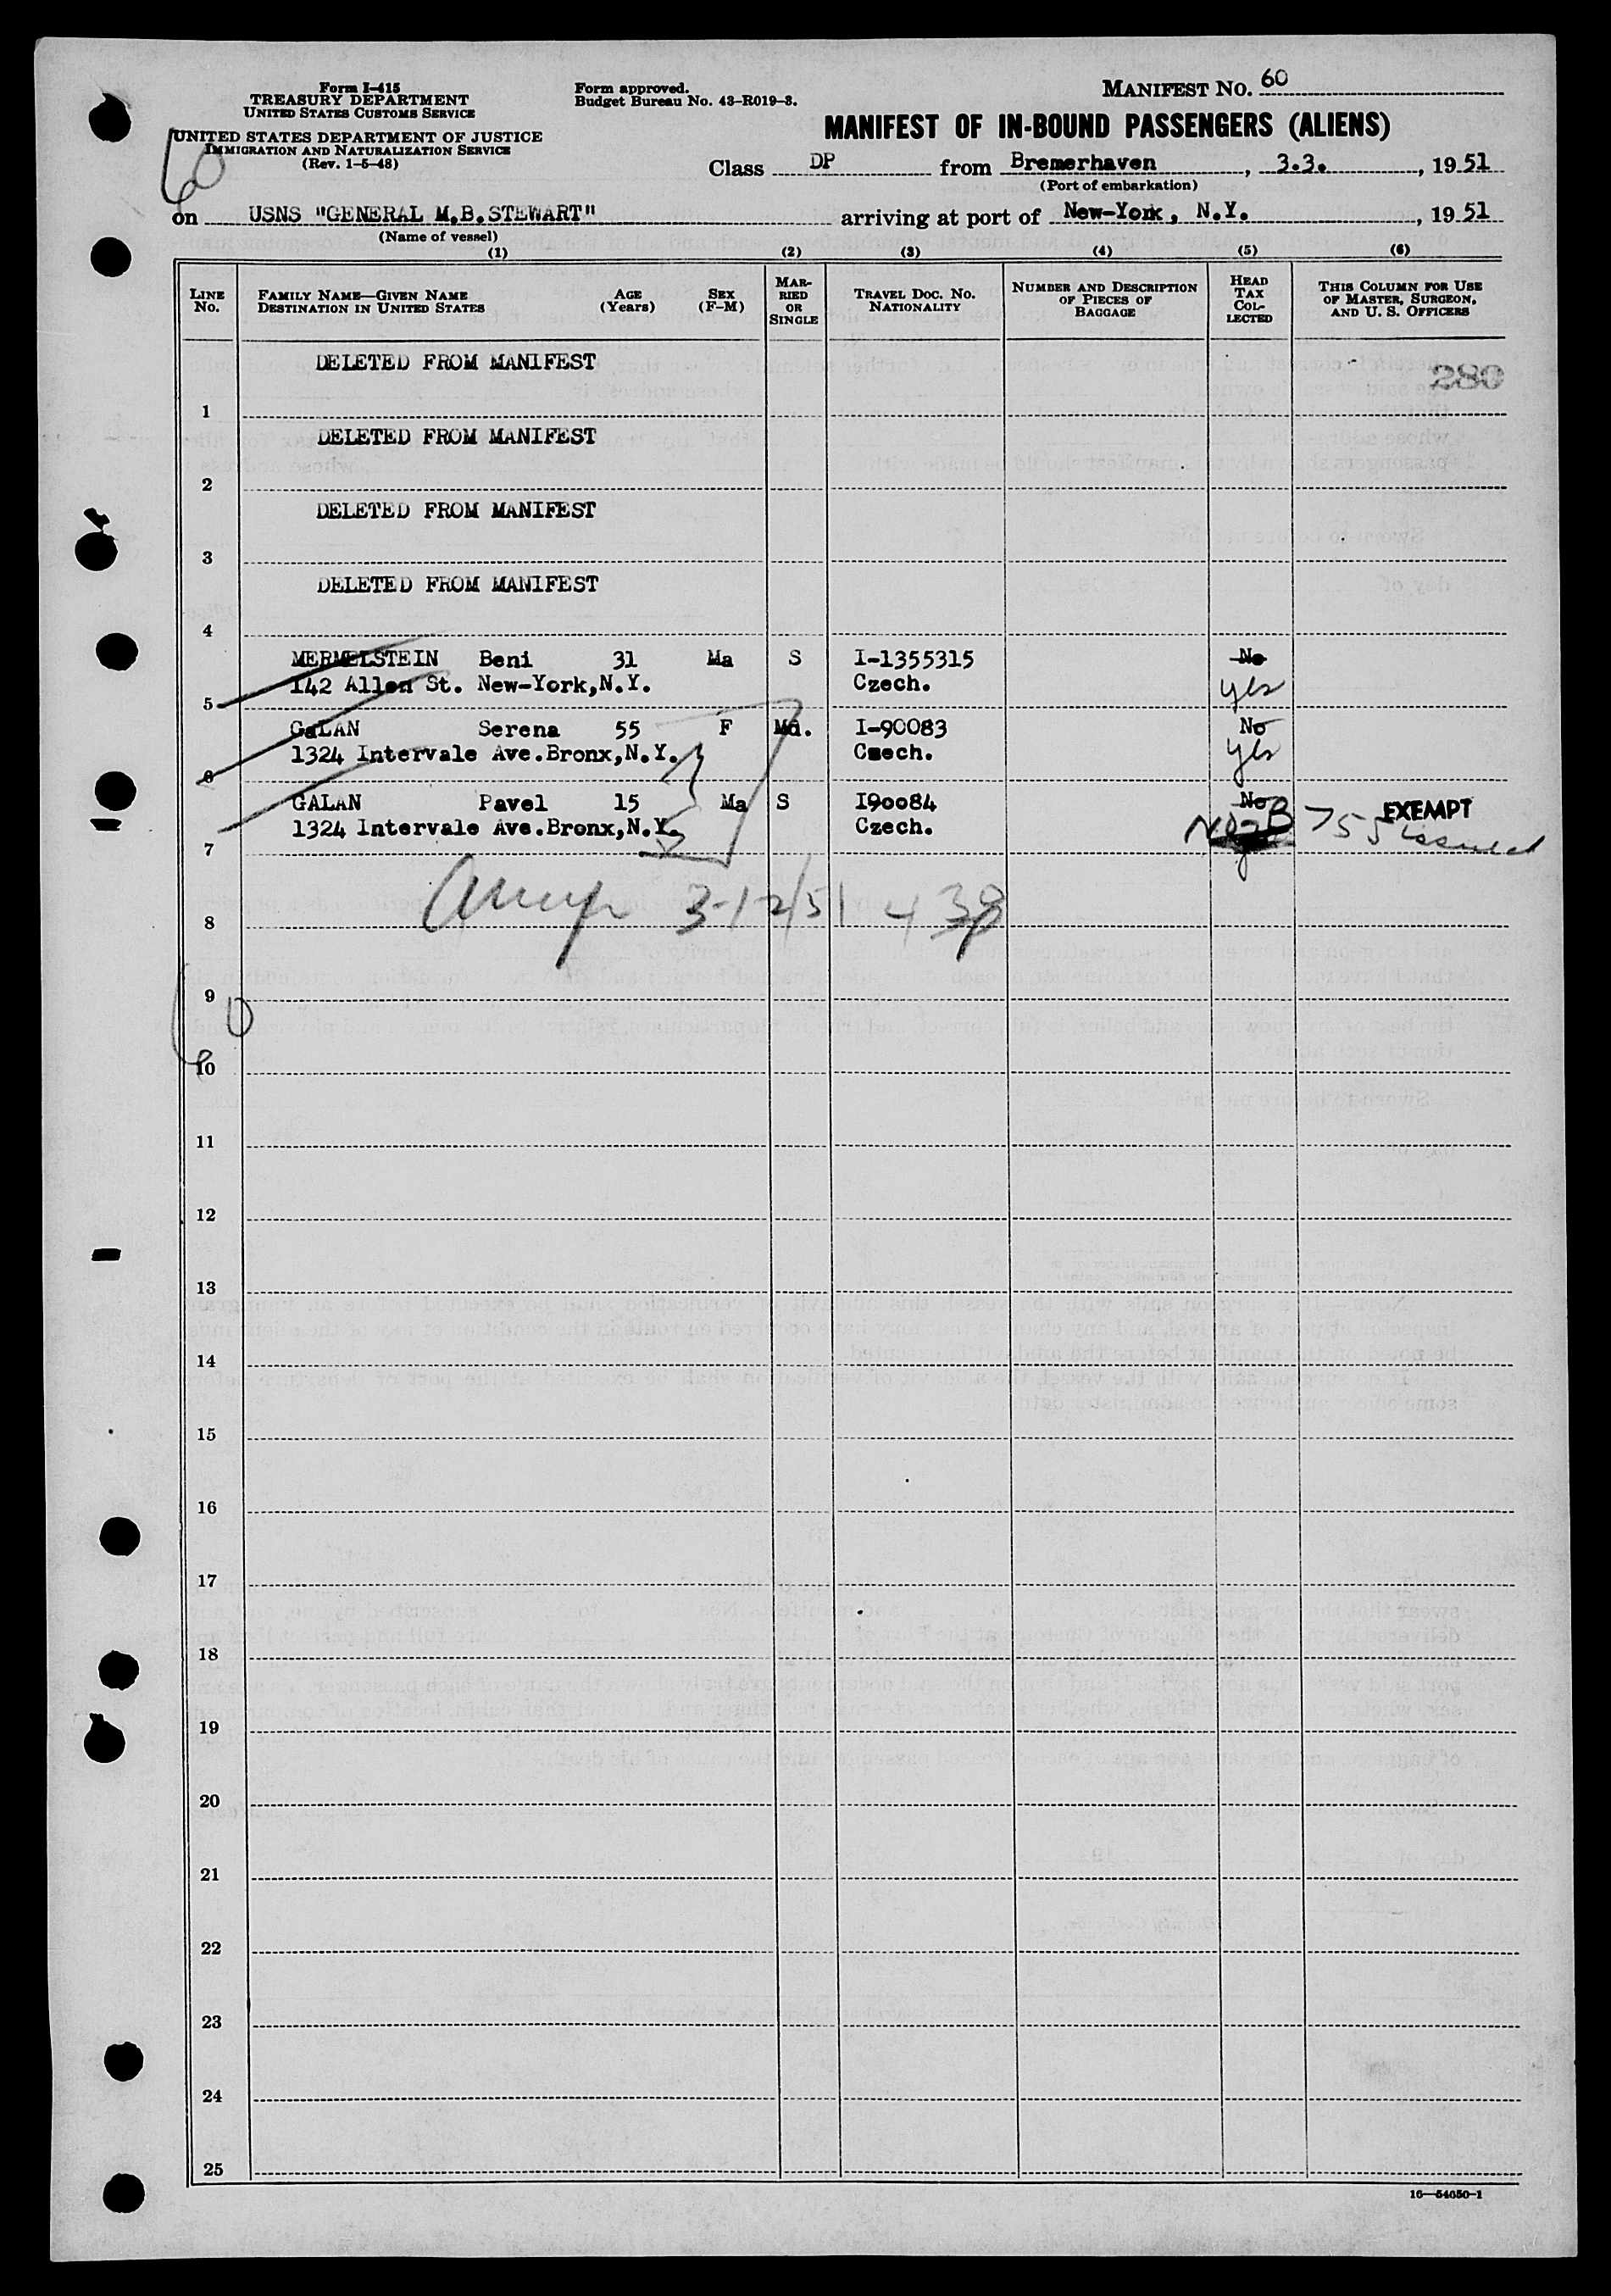 Form I-415
TREASURY DEPARTMENT
UNITED STATES CUSTOMS SERVICE
UNITED STATES DEPARTMENT OF JUSTICE
IMMIGRATION AND NATURALIZATION SERVICE
(Rev. 1-5-48)
60
Form approved.
Budget Bureau No. 43-R019-3.
MANIFEST NO. 60
MANIFEST OF IN-BOUND PASSENGERS (ALIENS)
Class DP from Bremerhaven, 3.3., 1951
(Port of embarkation)
on USNS "GENERAL M.B.STEWART" arriving at port of New-York, N.Y., 1951
(Name of vessel)
(1) (2) (3) (4) (5) (6)
LINE No. FAMILY NAME—GIVEN NAME DESTINATION IN UNITED STATES AGE (Years) SEX (F-M) MARRIED OR SINGLE TRAVEL DOC. NO. NATIONALITY NUMBER AND DESCRIPTION OF PIECES OF BAGGAGE HEAD TAX COLLECTED THIS COLUMN FOR USE OF MASTER, SURGEON, AND U. S. OFFICERS
DELETED FROM MANIFEST 280
1
DELETED FROM MANIFEST
2
DELETED FROM MANIFEST
3
DELETED FROM MANIFEST
4
MERMELSTEIN Beni 31 Ma S I-1355315 No
142 Allen St. New-York,N.Y. Czech. yes
5
GaLAN Serena 55 F Md. I-90083 No
1324 Intervale Ave.Bronx,N.Y. Czech. yes
6
GALAN Pavel 15 Ma S I90084 No EXEMPT
1324 Intervale Ave.Bronx,N.Y. Czech. issued
7
3-12/51 4 38
8
9
60
10
11
12
13
14
15
16
17
18
19
20
21
22
23
24
25
16—54650-1